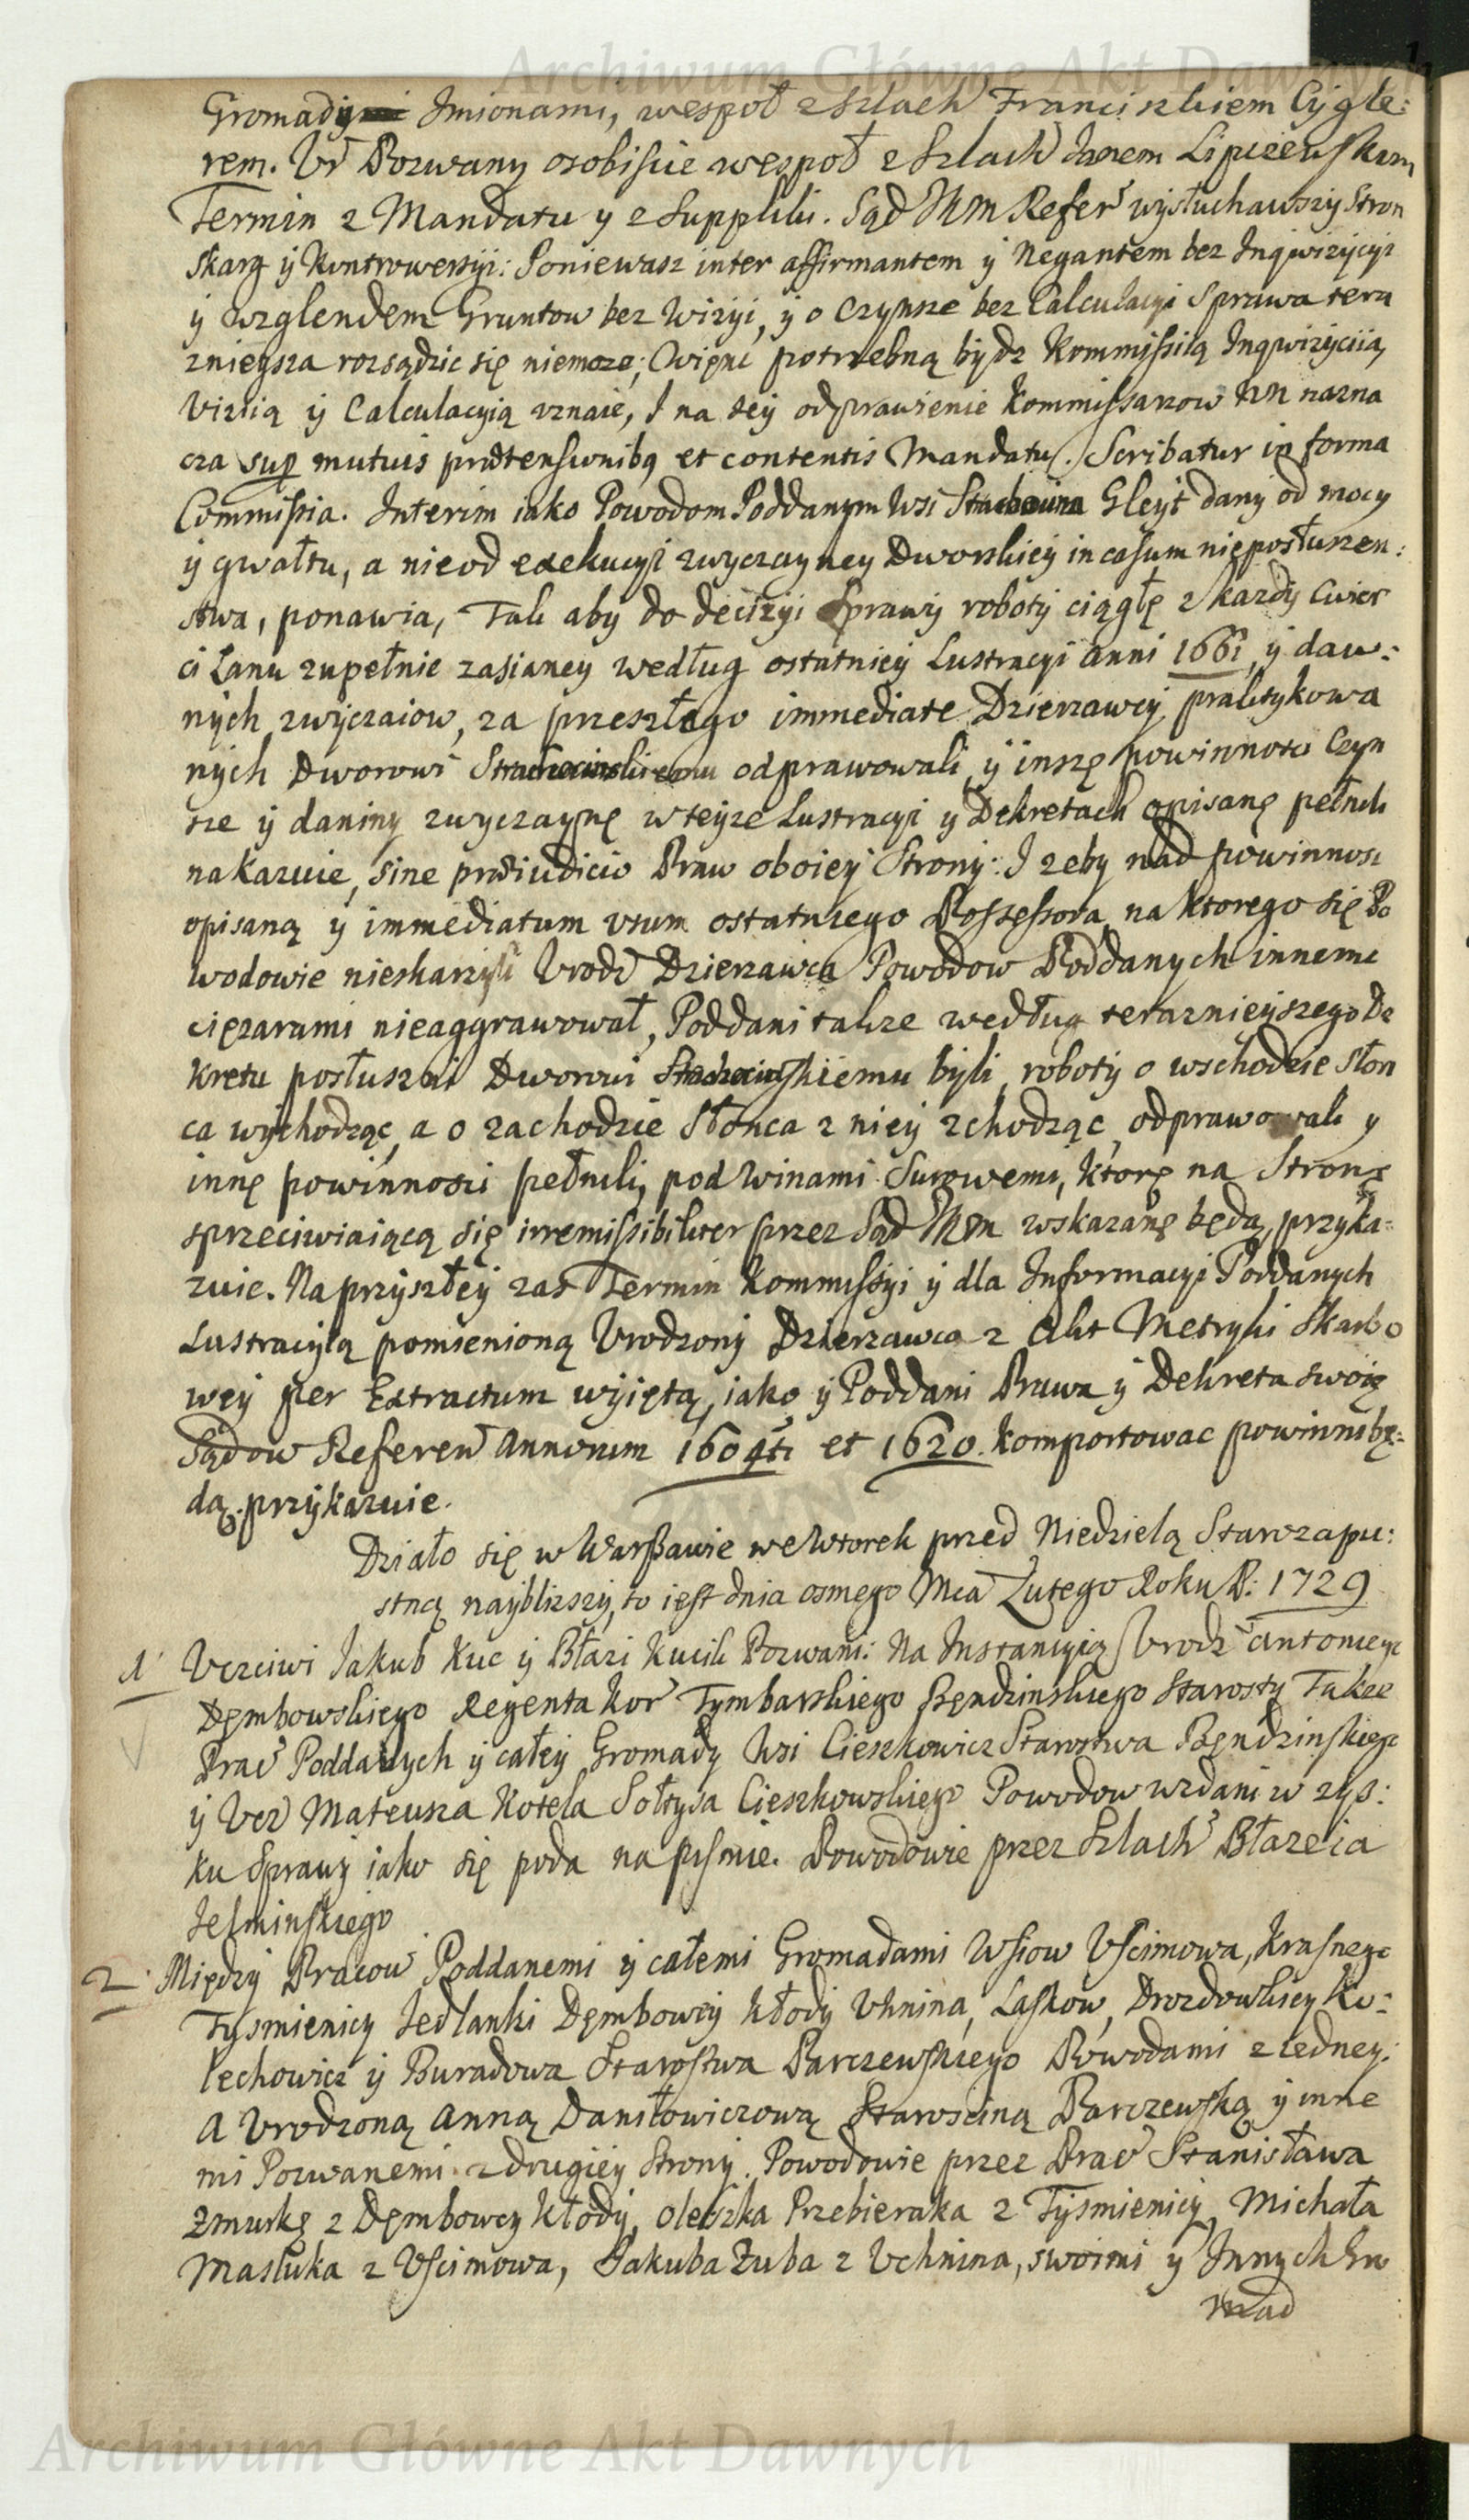 Archiwum Główne Akt Dawnych
Gromady Imionami, wespoł z Szlach Franciszkiem Cygle:
rem. Ur Pozwany osobiscie wespoł z Szlach Janem Lipczewskim
Termin z Mandatu y z Suppliki. Sąd JKM Refer wysłuchawszy Stron
Skarg y Kontrowersyi: Poniewasz inter affirmantem y Negantem bez Inqwizycyi
y wzglendem Gruntow bez Wizyi, y o Czynsze bez Calculacyi Sprawa tera
znieysza rozsądzic się niemoze; Więnc potrzebną bydz Kommissią Inqwizyciią,
Vizią y Calculacyią uznaie, I na tey odprawienie Kommissarzow nn nazna
cza sup mutuis prætensionibq et contentis Mandatu. Scribatur in forma
Commissia. Interim iako Powodom Poddanym Wsi Gleyt dany od mocy
y gwałtu, a nie od exekucyi zwyczayney Dworskiey in casum nieposłuszen:
stwa, ponawia, Tak aby do decizyi Sprawy roboty ciągłę z kazdy Cwier
ci Lanu zupełnie zasianey według ostatniey Lustracyi anni 1661 y daw:
nych zwyczaiow, za przeszłego immediate Dzierzawcy praktykowa
nych Dworowi odprawowali y inszę powinnosci Czyn
sze y daniny zwyczaynę w teyze Lustracyi y Dekretach opisanę pełnili
nakazuie, sine præiudicio Praw oboiey Strony: I zeby nad powinnosc
opisaną y immediatum usum ostatniego Possessora na ktorego się Po
wodowie nieskarzyli Urodz Dzierzawca Powodow Poddanych innemi
cięzarami nieaggrawował, Poddani takze według teraznieyszego De
kretu posłuszni Dworowi byli, roboty o wschodzie Słon
ca wychodząc, a o zachodzie Słonca z niey zchodząc, odprawowali y
innę powinnosci pełnili, pod Winami Surowemi, ktorę na Stronę
sprzeciwiaiącą się irremissibiliter przez Sąd JKM wskazanę będą, przyka:
zuie. Na przyszłey zas Termin Kommissyi y dla Informacyi Poddanych
Lustracyią pomienioną Urodzony Dzierzawca z Akt Metryki Skarbo
wey per Extractum wyiętą, iako y Poddani Prawa y Dekreta swoię
Sądow Referen Annorum 1604ti et 1620. komportowac powinni bę:
dą. przykazuie.
Działo się w Warszawie we Wtorek przed Niedzielą Starozapu:
stną nayblizszy, to iest dnia osmego Mca Lutego Roku P: 1729
1 Uczciwi Jakub Kuc y Błazi Kucik Pozwani: Na Instancyią Urodz Antoniego
Dembowskiego Regenta Kor Tymbarskiego Będzinskiego Starosty Takze
Prac Poddanych y całey Gromady Wsi Cieszkowicz Starostwa Będzinskiego
y Ucz Mateusza Kotela Sołtysa Cieszkowskiego Powodow wzdani w zys:
ku Sprawy iako się poda na pismie. Powodowie przez Szlach Błazeia
Jelminskiego
2 Między Pracow Poddanemi y całemi Gromadami Wsiow Uscimowa, Krasnego
Tysmienicy Jedlanki Dembowey Kłody Uhnina, Laskow, Drozdowkiey Ko:
lechowicz y Buradowa Starostwa Parczewskiego Powodami z iedney:
A Urodzoną Anną Daniłowiczową Starosciną Parczewską y inne
mi Pozwanemi z drugiey Strony. Powodowie przez Prac Stanisława
Zmurkę z Dembowey Kłody, Oleszka Przebieraka z Tysmienicy, Michała
Masluka z Uscimowa, Jakuba Zuba z Uchnina, swoimi y Innych Gro
mad
Archiwum Główne Akt Dawnych